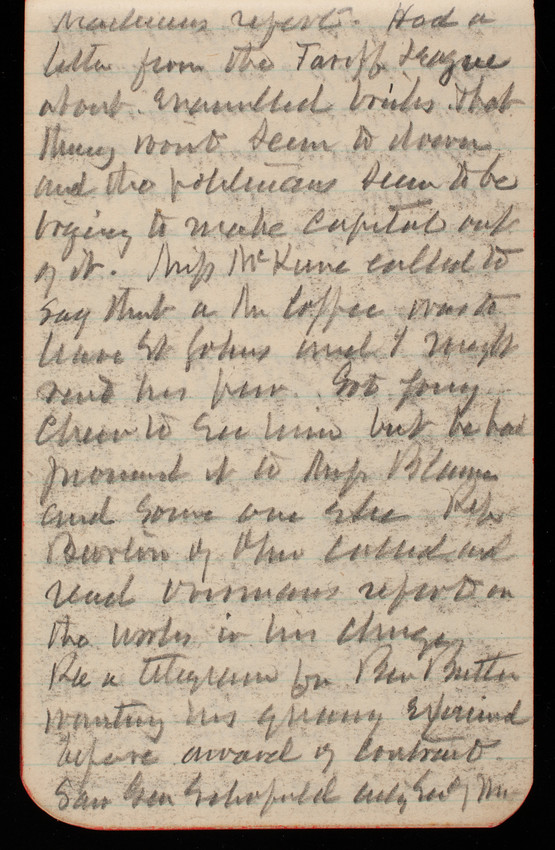 report. Had a
letter from the Tariff League
about Enamelled bricks. That
thing wont seem to down
and the politicians seem to be
trying to make capital out
of it. Miss McKune called to
say that a Mr Coffee was to
leave St Johns and I might
rent his pew. Got
to see him but he had
promised it to Miss Blaine
and some one else Rep
Burton of Ohio called and
read report on
the works in his charge
Rec a telegram fm Ben Butler
wanting his examined
before award of contract.
Saw Gen Schofield